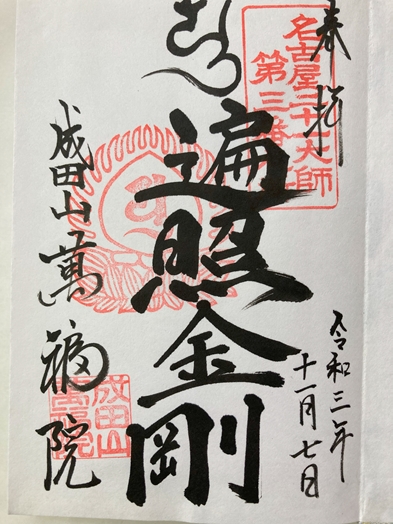 奉拝
名古屋二十一大師
第三番
令和三年
十一月七日
遍照金剛
成田山萬福院
成田山
萬福院